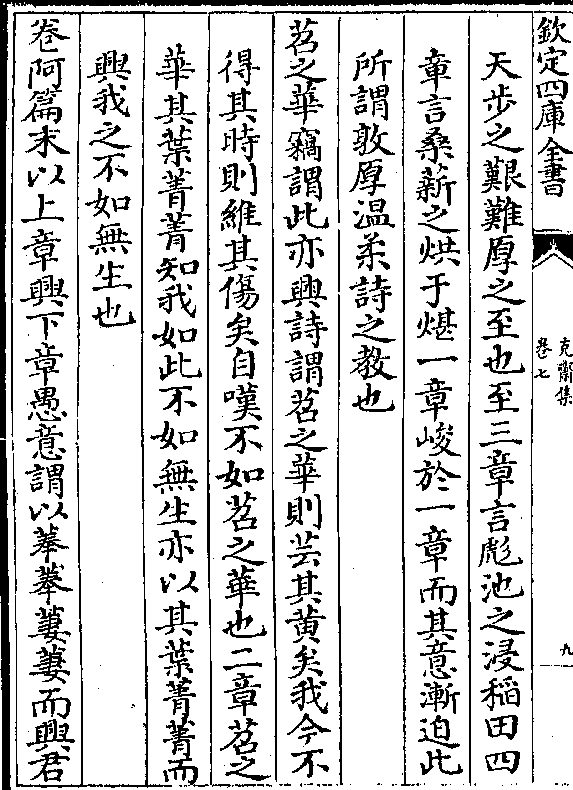 欽定四庫全書
克齋集
卷七
九
天步之艱難厚之至也至三章言彪池之浸稻田四
章言桑薪之烘于煁一章峻於一章而其意漸迫此
所謂敦厚温柔詩之教也
苕之華竊謂此亦興詩謂苕之華則芸其黄矣我今不
得其時則維其傷矣自嘆不如苕之華也二章苕之
華其葉菁菁知我如此不如無生亦以其葉菁菁而
興我之不如無生也
卷阿篇末以上章興下章愚意謂以菶菶萋萋而興君